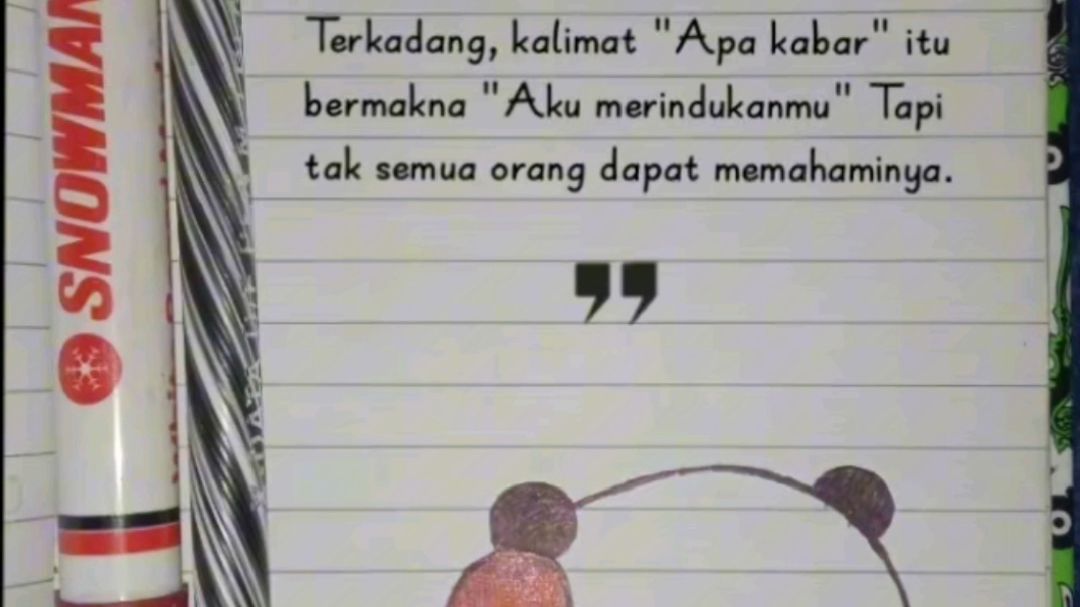 Terkadang, kalimat "Apa kabar" itu
bermakna "Aku merindukanmu" Tapi
tak semua orang dapat memahaminya.
"
SNOWMAN